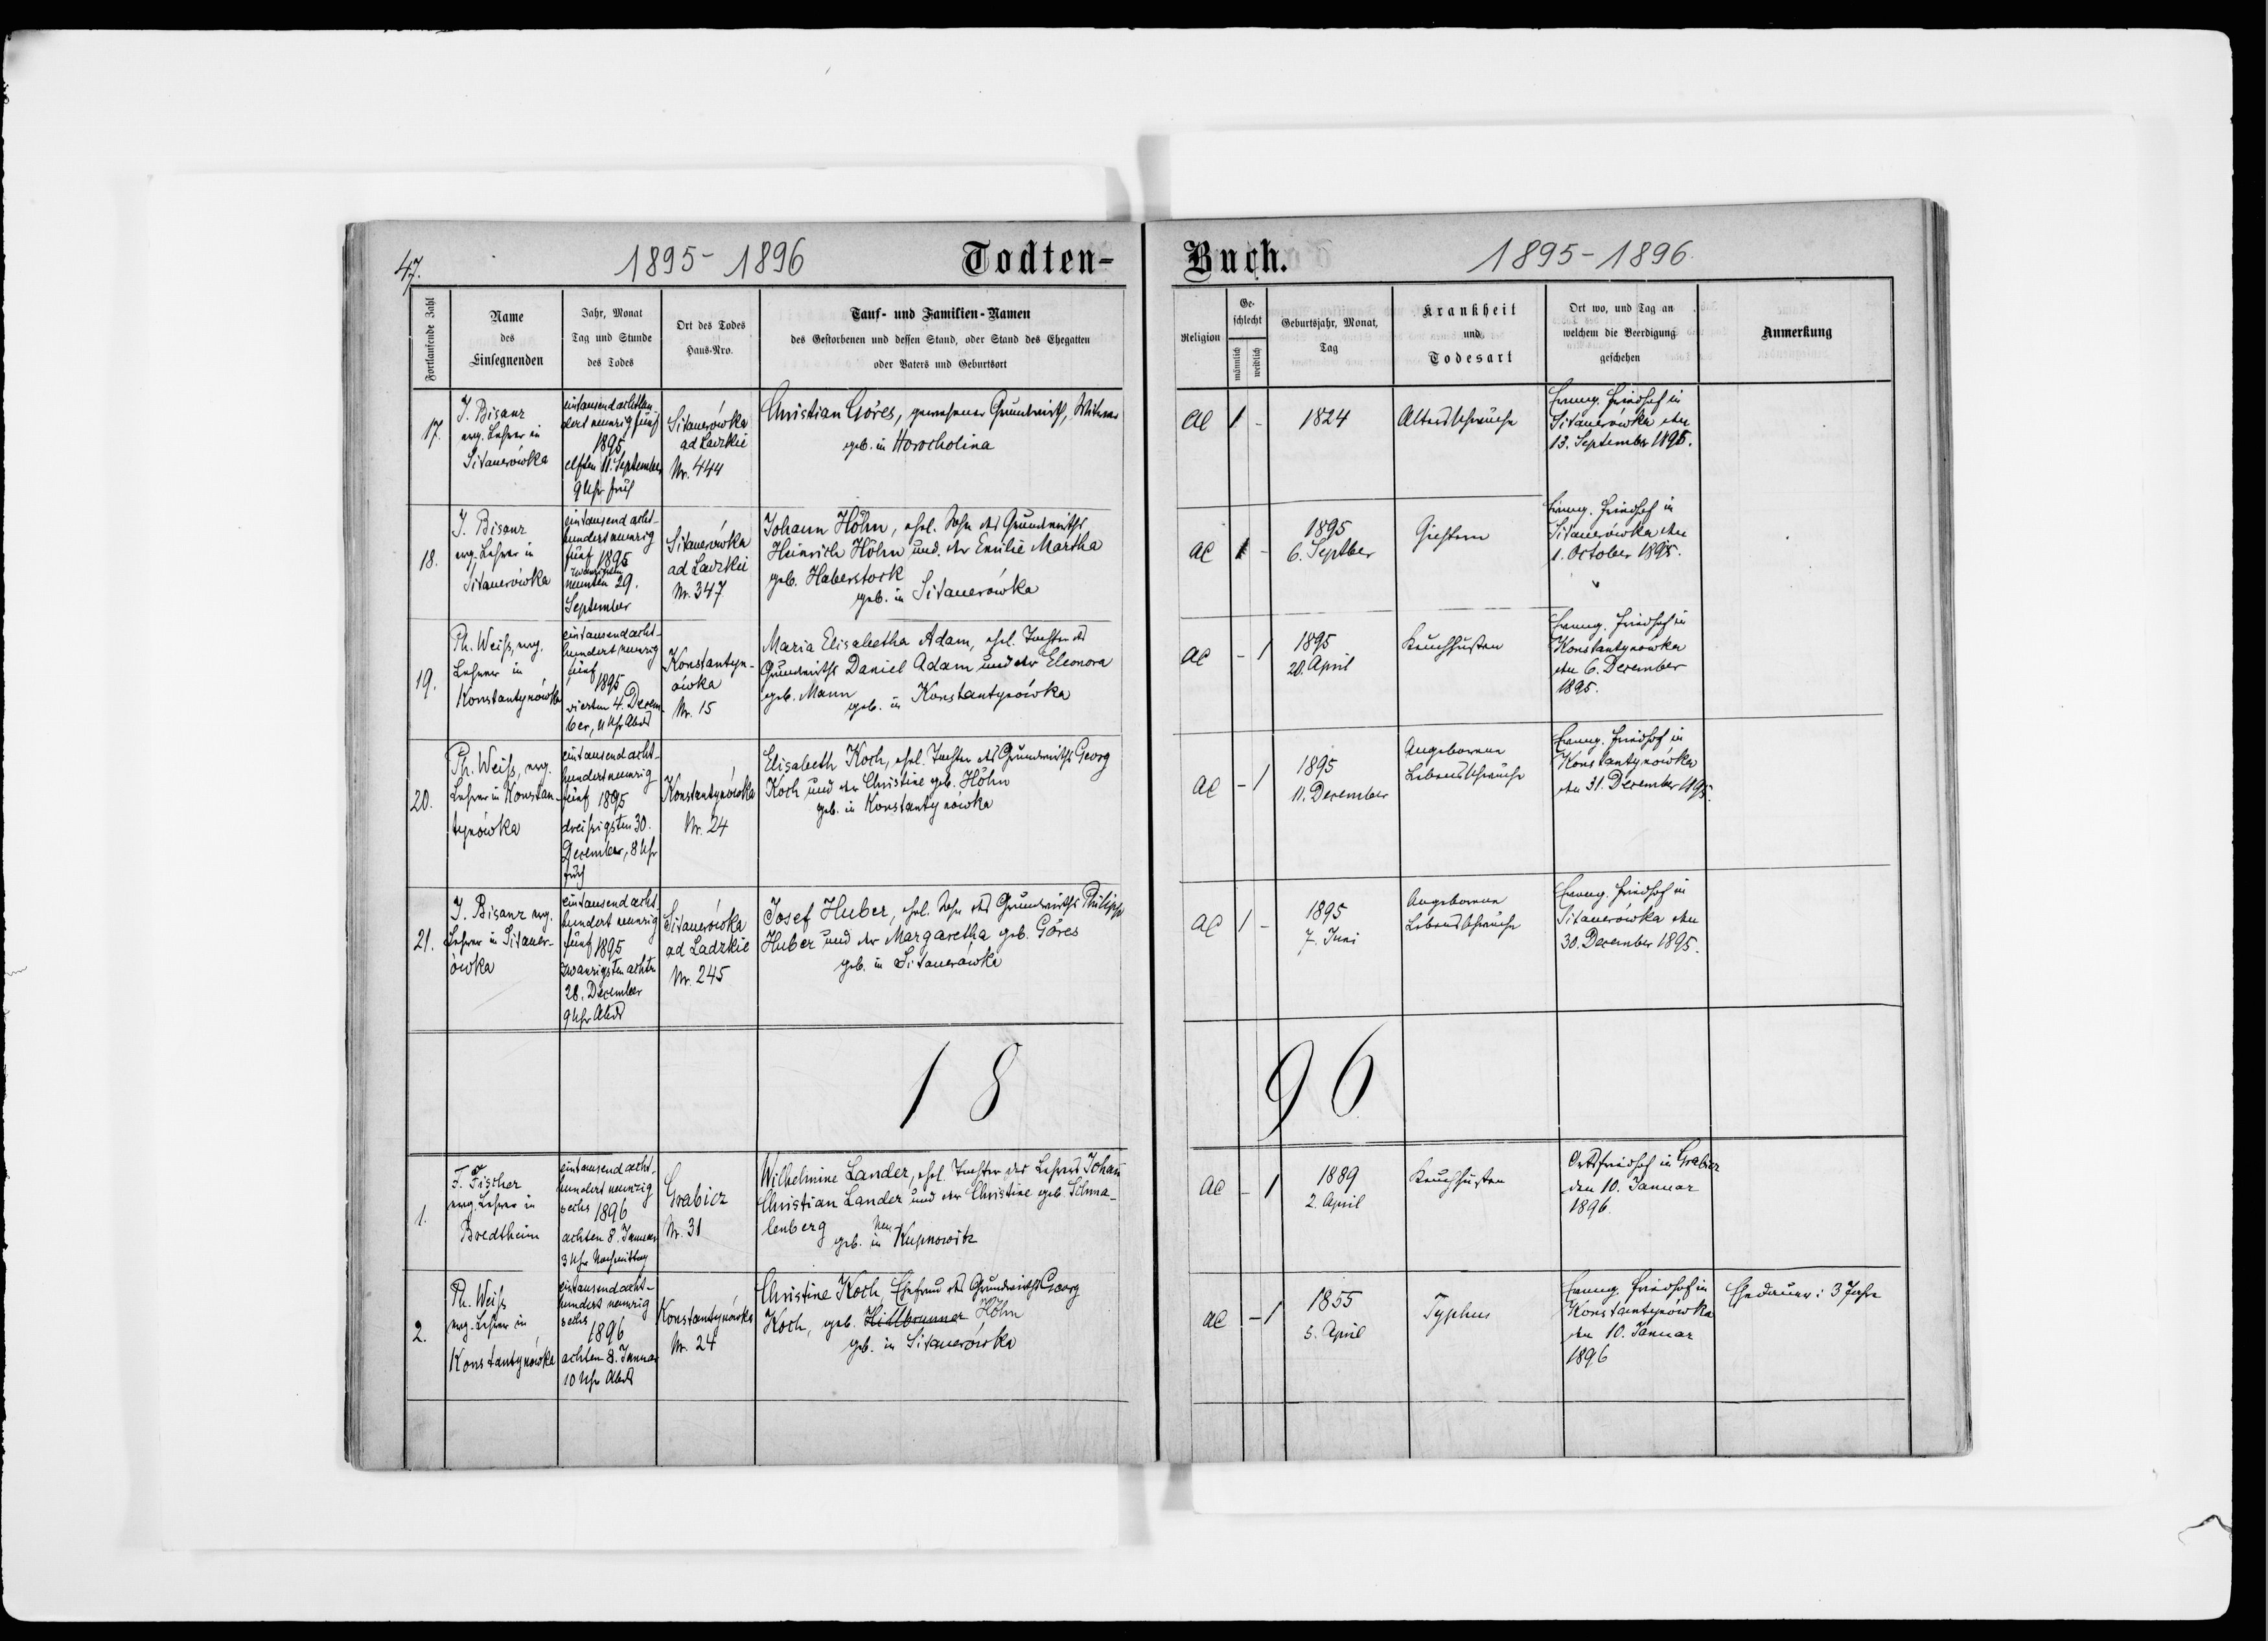 47.
1895-1896
Todten-
Buch.
1895-1896.
Fortlaufende Zahl
Name
des
Einsegnenden
Jahr, Monat
Tag und Stunde
des Todes
Ort des Todes
Haus-Nro.
Tauf- und Familien-Namen
des Gestorbenen und dessen Stand, oder Stand des Ehegatten
oder Vaters und Geburtsort
Religion
Ge-
schlecht
männlich
weiblich
Geburtsjahr, Monat,
Tag
Krankheit
und
Todesart
Ort wo, und Tag an
welchem die Beerdigung
geschehen
Anmerkung
17.
J. Bisanz
evg. Lehrer in
Sitauerówka
eintausend achthun
dert neunzig fünf
1895
elften 11. September
9 Uhr früh
Sitauerówka
ad Ladzkie
Nr. 444
Christian Göres, gewesener Grundwirth, Witwer
geb. in Horocholina
AC
1
-
1824
Altersschwäche
Evang. Friedhof in
Sitauerówka den
13. September 1895.
18.
J. Bisanz
evg. Lehrer in
Sitauerówka
eintausend acht-
hundert neunzig
fünf 1895
neunten 29.
September
Sitauerówka
ad Ladzkie
Nr. 347
Johann Höhn, ehel. Sohn des Grundwirths
Heinrich Höhn und der Emilie Martha
geb. Haberstock
geb. in Sitauerówka
AC
1
-
1895
6. Septber
Gichtern
Evang. Friedhof in
Sitauerówka den
1. October 1895.
19.
Ph. Weiß, evg.
Lehrer in
Konstantynówka
eintausend acht-
hundert neunzig
fünf
1895
vierten 4. Decem-
ber, 11 Uhr Abds
Konstantyn-
ówka
Nr. 15
Maria Elisabetha Adam, ehel. Tochter des
Grundwirths Daniel Adam und der Eleonora
geb. Mann
geb. in Konstantynówka
AC
-
1
1895
20. April
Keuchhusten
Evang. Friedhof in
Konstantynówka
den 6. December
1895.
20.
Ph. Weiß, evg.
Lehrer in Konstan-
tynówka
eintausend acht-
hundert neunzig
fünf 1895
dreißigsten 30.
December, 8 Uhr
früh
Konstantynówka
Nr. 24
Elisabeth Koch, ehel. Tochter des Grundwirths Georg
Koch und der Christine geb. Höhn
geb. in Konstantynówka
AC
-
1
1895
11. December
Angeborene
Lebensschwäche
Evang. Friedhof in
Konstantynówka
den 31. December 1895.
21.
J. Bisanz evg.
Lehrer in Sitauer-
ówka
eintausend acht-
hundert neunzig
fünf 1895
zwanzigsten achten
28. December
9 Uhr Abds
Sitauerówka
ad Ladzkie
Nr. 245
Josef Huber, ehel. Sohn des Grundwirths Philipp
Huber und der Margaretha geb. Göres
geb. in Sitauerówka
AC
1
-
1895
7. Juni
Angeborene
Lebensschwäche
Evang. Friedhof in
Sitauerówka den
30. December 1895.
18
96
1.
F. Fischer
evg. Lehrer in
Bredtheim
eintausend acht-
hundert neunzig
sechs 1896
achten 8. Januar
3 Uhr Nachmittag
Grabicz
Nr. 31
Wilhelmine Lander, ehel. Tochter des Lehrers Johan̄
Christian Lander und der Christine geb. Schma-
lenberg
geb. in Neu Kupnowitz
AC
-
1
1889
2. April
Keuchhusten
Ortsfriedhof in Grabicz
den 10. Januar
1896.
2.
Ph. Weiß
evg. Lehrer in
Konstantynówka
eintausend acht-
hundert neunzig
sechs
1896
achten 8. Januar
10 Uhr Abds
Konstantynówka
Nr. 24
Christine Koch, Ehefrau des Grundwirths Georg
Koch, geb. Hidlbrunner Höhn
geb. in Sitauerówka
AC
-
1
1855
5. April
Typhus
Evang. Friedhof in
Konstantynówka
den 10. Januar
1896
Ehedauer: 3 Jahre